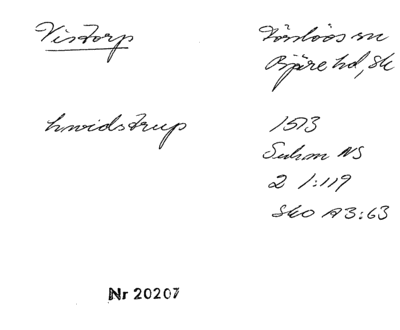 Vistorp
Förslöv sn
Bjäre hd, Sk
hwidstrup
1573
NS
2 1:119
Sko A3:63
Nr 20207